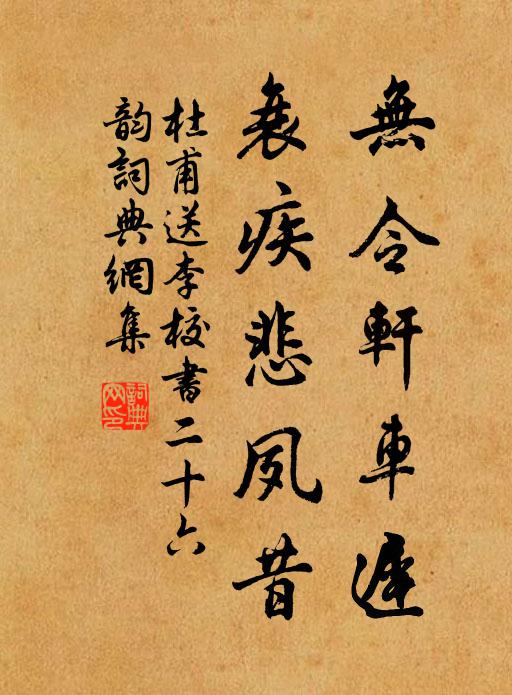 無令軒車遲
衰疾悲夙昔
杜甫送李校書二十六
韵詞典網集
詞典網印